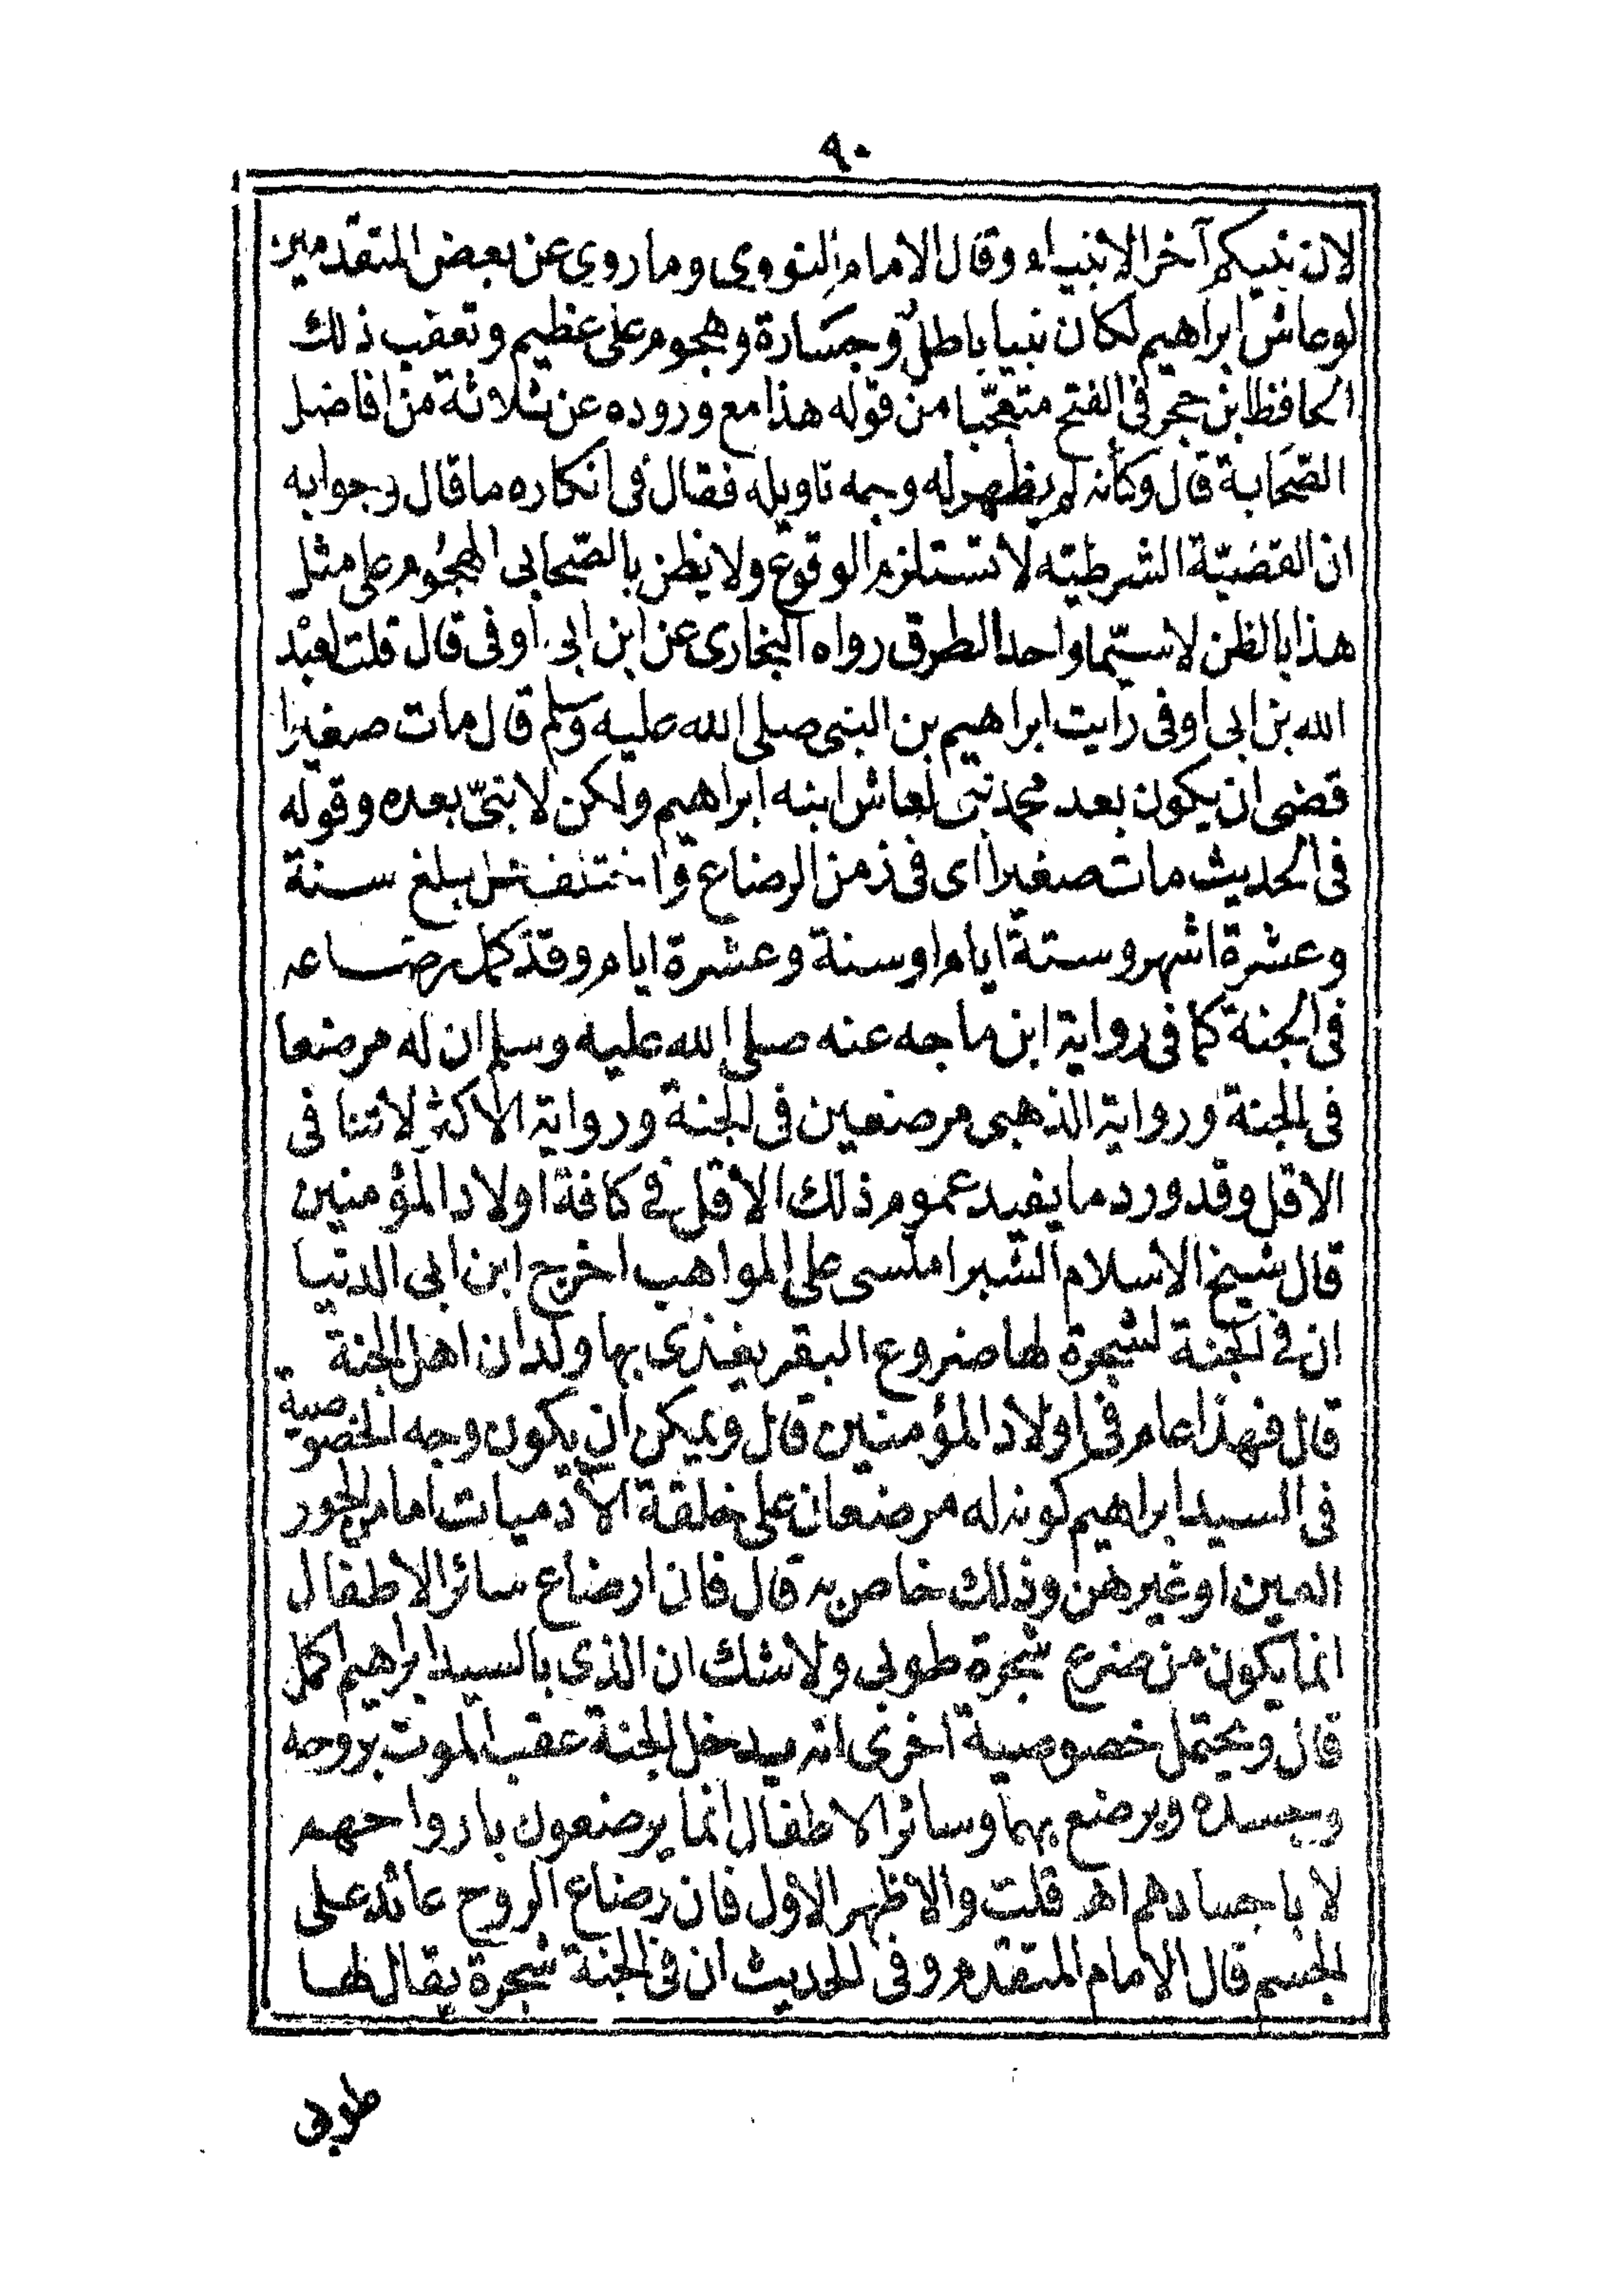 ٩٠
لان نبيكم آخر الانبياء وقال الامام النووى وما روي عن بعض المتقدمين
لوعاش ابراهيم لكان نبيا باطل وجسارة وهجوم على عظيم وتعقب ذلك
الحافظ ابن حجر فى الفتح متعجّبا من قوله هذا مع وروده عن ثلاثة من افاضل
الصّحابة قال وكأنه لم يظهر له وجه تاويله فقال فى انكاره ما قال وجوابه
ان القضيّة الشرطيّه لا تستلزم الوقوع ولا يظن بالصّحابى الهجُوم على مثل
هذا بالظن لا سيّما واحد الطرق رواه البخارى عن ابن ابى اوفى قال قلت لعبْد
الله بن ابى اوفى رايت ابراهيم بن النبى صلى الله عليه وسلم قال مات صغيرا
قضى ان يكون بعد محمد نبى لعاش ابنه ابراهيم ولكن لا نبىّ بعده وقوله
فى الحديث مات صغيرا اى فى زمن الرضاع واختلف هل بلغ سنة
وعشرة اشهر وستة ايام او سنة وعشرة ايام وقد كمل رضاعه
فى الجنة كما فى رواية ابن ماجه عنه صلى الله عليه وسلم ان له مرضعا
فى الجنة ورواية الذهبى مرضعين فى الجنة ورواية الاكثر لا تنافى
الاقل وقد ورد ما يفيد عموم ذلك الاقل في كافة اولاد المؤمنين
قال شيخ الاسلام الشبراملسى على المواهب اخرج ابن ابى الدنيا
ان في الجنة لشجرة لها ضروع البقر يغذى بها ولدان اهل الجنة
قال فهذا عام فى اولاد المؤمنين قال ويمكن ان يكون وجه الخصوصية
فى السيد ابراهيم كونه له مرضعان على خلقة الآدميات اما من الحور
العين او غيرهن وذلك خاص به قال فان ارضاع سائر الاطفال
انما يكون من ضرع شجرة طوبى ولا شك ان الذى بالسيد ابراهيم اكمل
قال ويحتمل خصوصية اخرى انه يدخل الجنة عقب الموت بروحه
وبجسده ويرضع بهما وسائر الاطفال انما يرضعون بارواحهم
لا باجسادهم اهـ قلت والاظهر الاول فان رضاع الروح عائد على
الجسم قال الامام المتقدم وفى الحديث ان فى الجنة شجرة يقال لها
طوبى